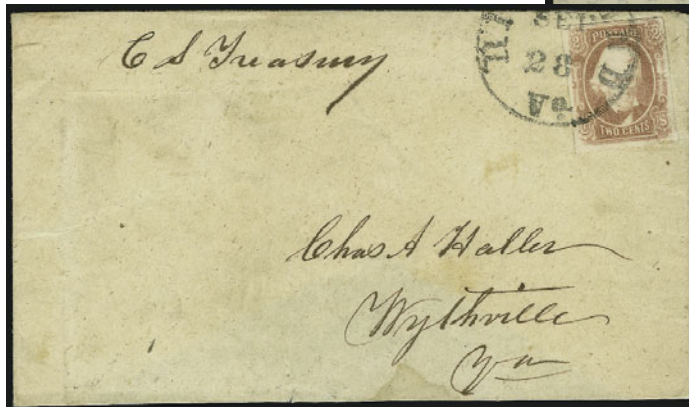 C S Treasury
SEP
28
Va.
POSTAGE
TWO CENTS
Chas A Haller
Wythville
Va